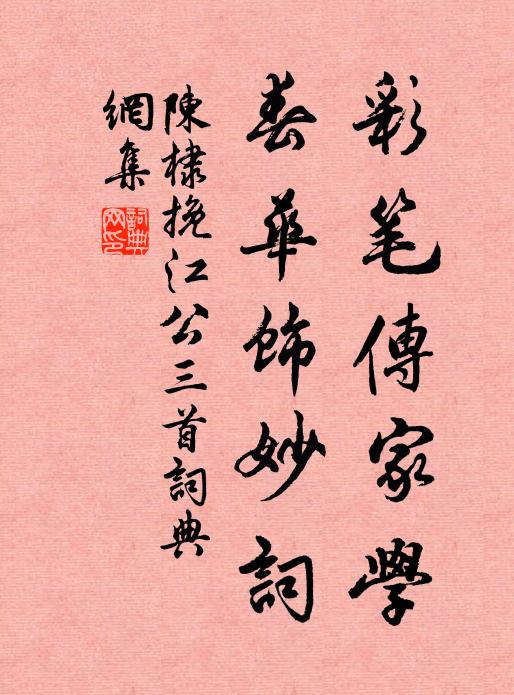 彩笔傳家學
春華飾妙詞
陳棣挽江公三首詞典
網集
詞典
网印